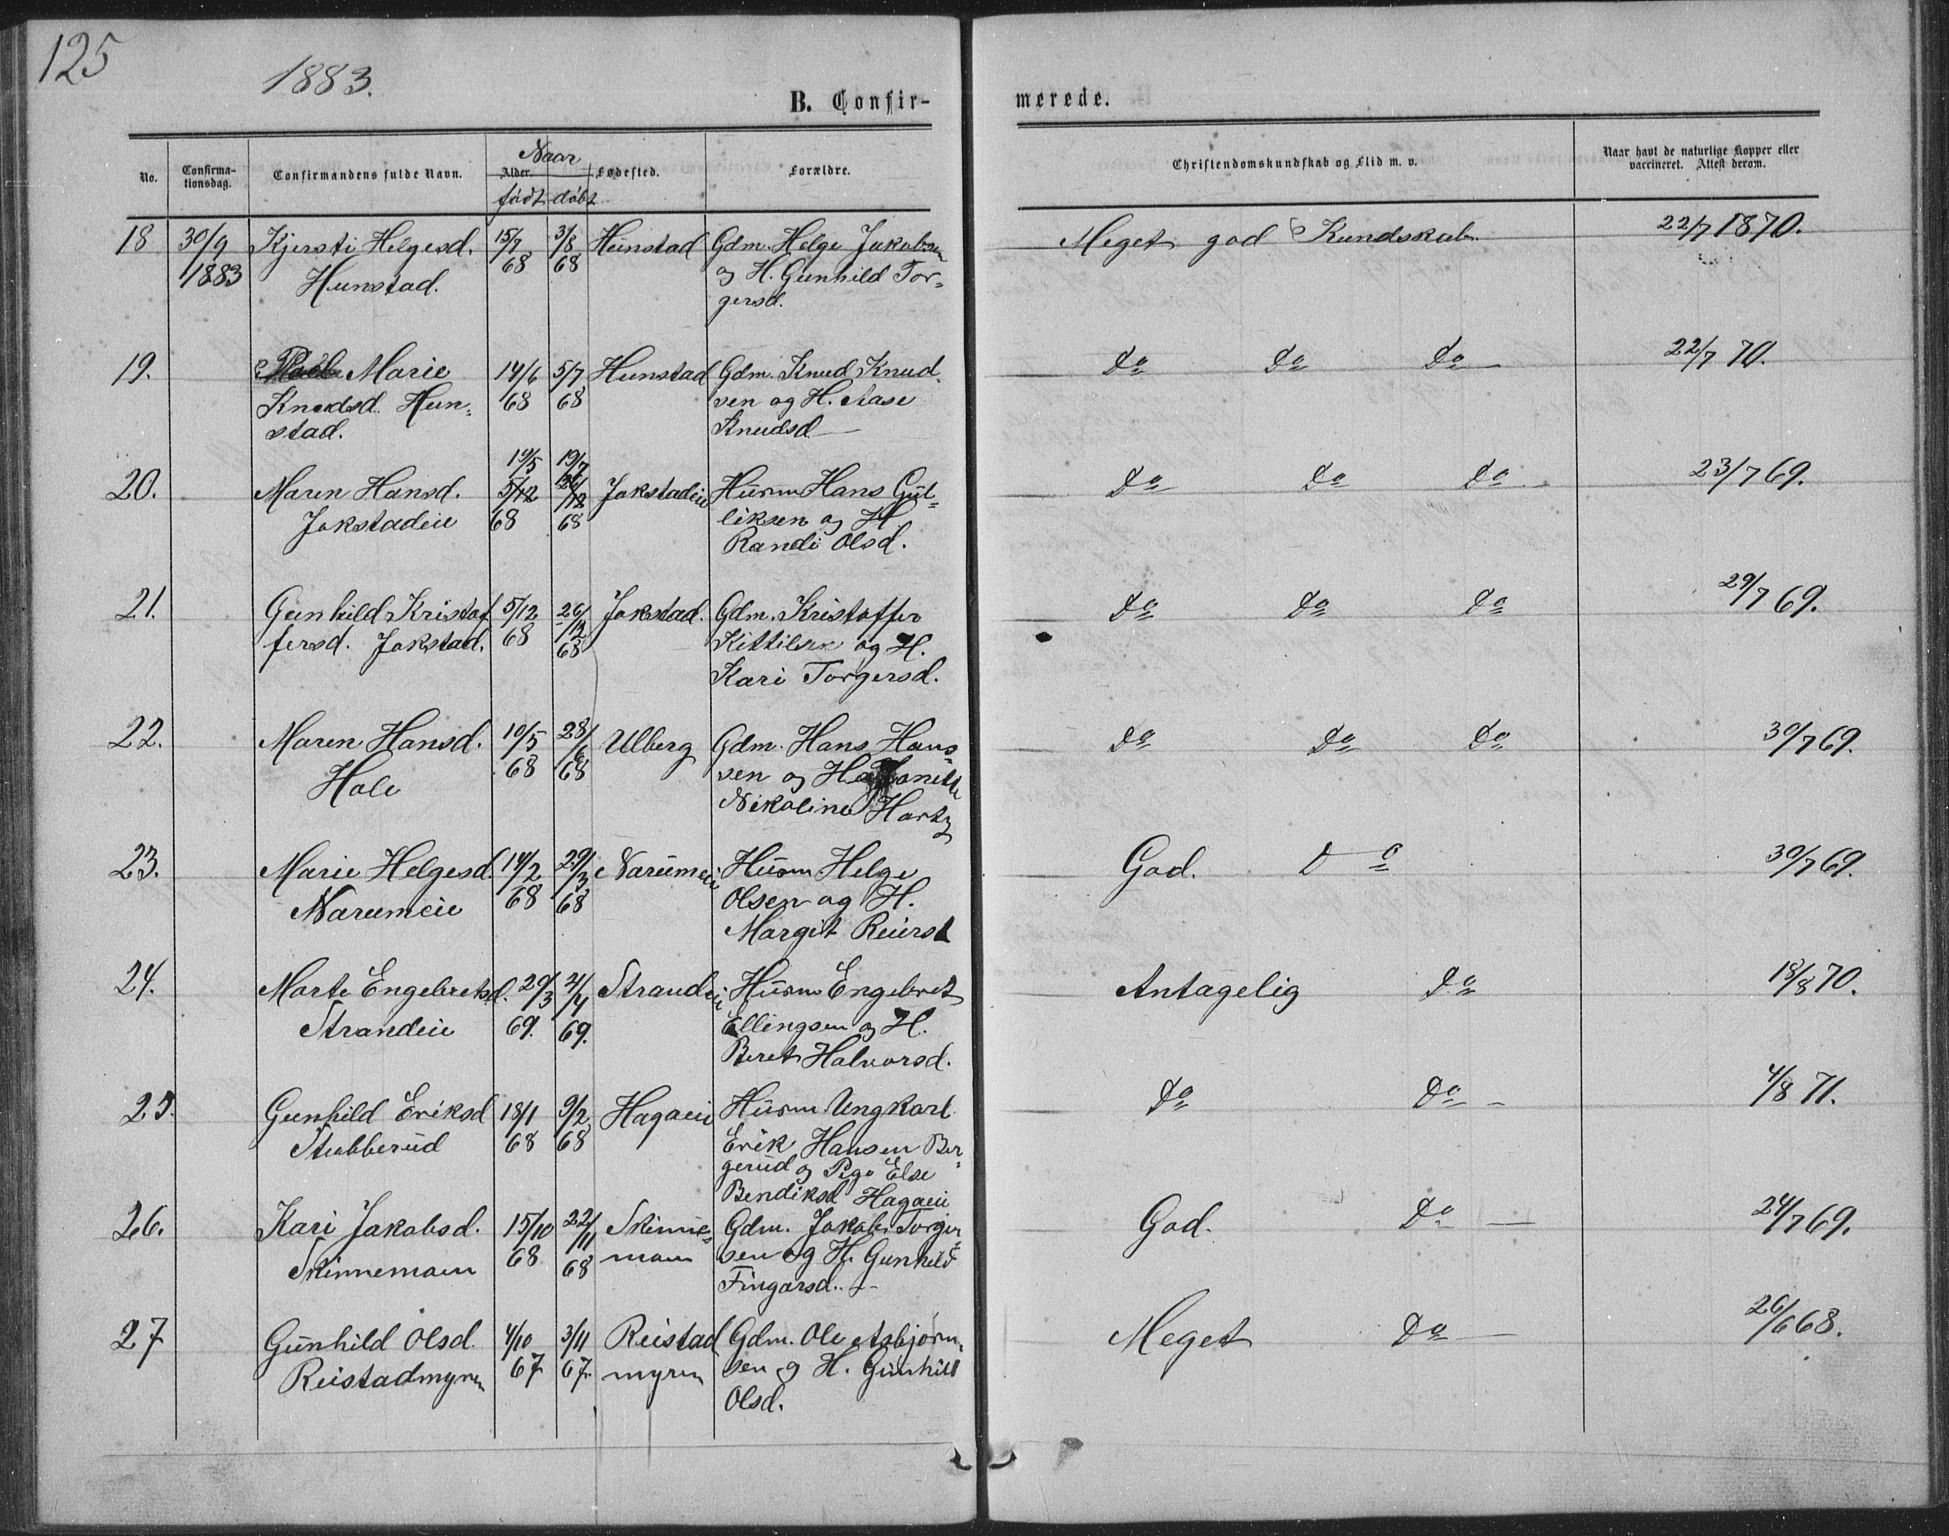 125
1883.
B. Confir-
merede.
No.
Confirma-
tionsdag.
Confirmandens fulde Navn.
Naar
Alder.
født døbt
Fødested.
Forældre.
Christendomskundskab og Flid m. v.
Naar havt de naturlige Kopper eller
vaccineret. Attest derom.
18 30/9 Kjersti Helgesd. 15/7 3/8 Hunstad Gdm. Helge Jakobsen Meget god Kundskab. 22/7 1870.
1883 Hunstad. 68 68 og H. Gunhild Tor-
gersd.
19. Marie 14/6 5/7 Hunstad Gdm. Knud Knud- do do do 22/7 70.
Knudsd. Hun- 68 68 sen og H. Aase
stad. Knudsd
19/5 19/7
20. Maren Hansd. 5/12 26/12 Jokstadeie Husm Hans Gul- do do do 23/7 69.
Jokstadeie 68 68 liksen og H
Randi Olsd.
21. Gunhild Kristof 5/12 26/12 Jokstad. Gdm. Kristoffer do do do 29/7 69.
fersd. Jokstad. 68 68 Kittilsen og H.
Kari Torgersd.
22. Maren Hansd. 10/5 28/6 Ulberg Gdm. Hans Han- do do do 30/7 69.
Hole 68 68 sen og
Nikoline
23. Marie Helgesd. 14/2 29/3 Narumeie Husm Helge God. do 30/7 69.
Narumeie 68 68 Olsen og H.
Margit Reiersd
24. Marte Engebretsd. 29/3 Strandeie Husm Engebret Antagelig do 18/8 70.
Strandeie 69. 69. Ellingsen og H.
Beret Halvorsd.
25. Gunhild Eriksd 18/1 9/2 Hagaeie Husm Ungkarl do do 4/8 71.
Stubberud 68 68 Erik Hansen Ber-
gerud og Pige Else
Bendiksd Hagaeie
26. Kari Jakobsd. 15/10 22/11 Skinne- Gdm. Jakob Torger- God. do 24/7 69.
Skinnemoen 68 68 moen sen og H. Gunhild
Fingarsd.
27 Gunhild Olsd. 4/10 3/11 Reistad Gdm. Ole Asbjørn- Meget do 26/6 68.
Reistadmyren 67 67 myren sen og H. Gunhild
Olsd.